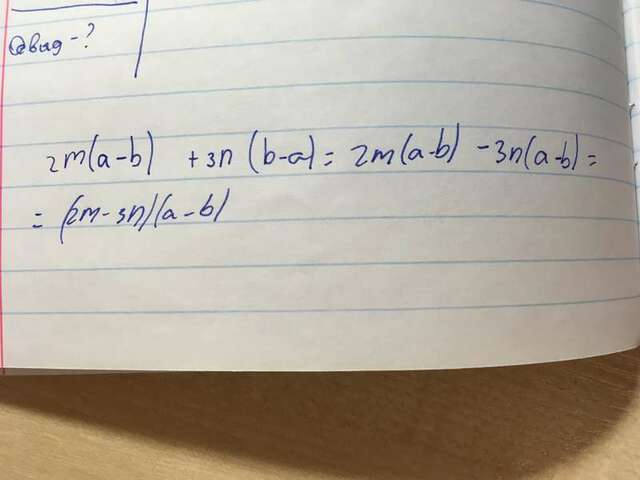 2m(a-b) + 3n(b-a) = 2m(a-b) - 3n(a-b) =
= (2m-3n)(a-b)